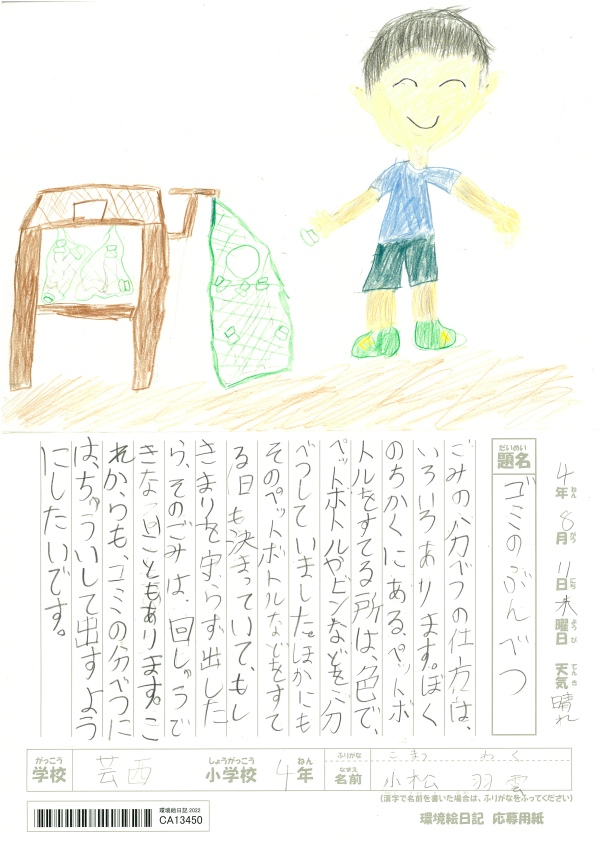 4年 8月 11日 木曜日 天気 晴れ
ねん がつ にち ようび てんき
だいめい
題名 ゴミのぶんべつ
ごみの分べつの仕方は、
いろいろあります。ぼく
のちかくにある、ペットボ
トルをすてる所は、色で、
ペットボトルやビンなどを分
べつしていました。ほかにも
そのペットボトルなどをすて
る日も決まっていて、もし
きまりを守らず出した
ら、そのごみは、回しゅうで
きないこともあります。こ
れからも、ゴミの分べつに
は、ちゅういして出すよう
にしたいです。
がっこう しょうがっこう ねん
学校 芸西 小学校 4年
ふりがな こまつ わく
なまえ
名前 小松 羽雲
(漢字で名前を書いた場合は、ふりがなをふってください)
環境絵日記 2022
CA13450
環境絵日記 応募用紙